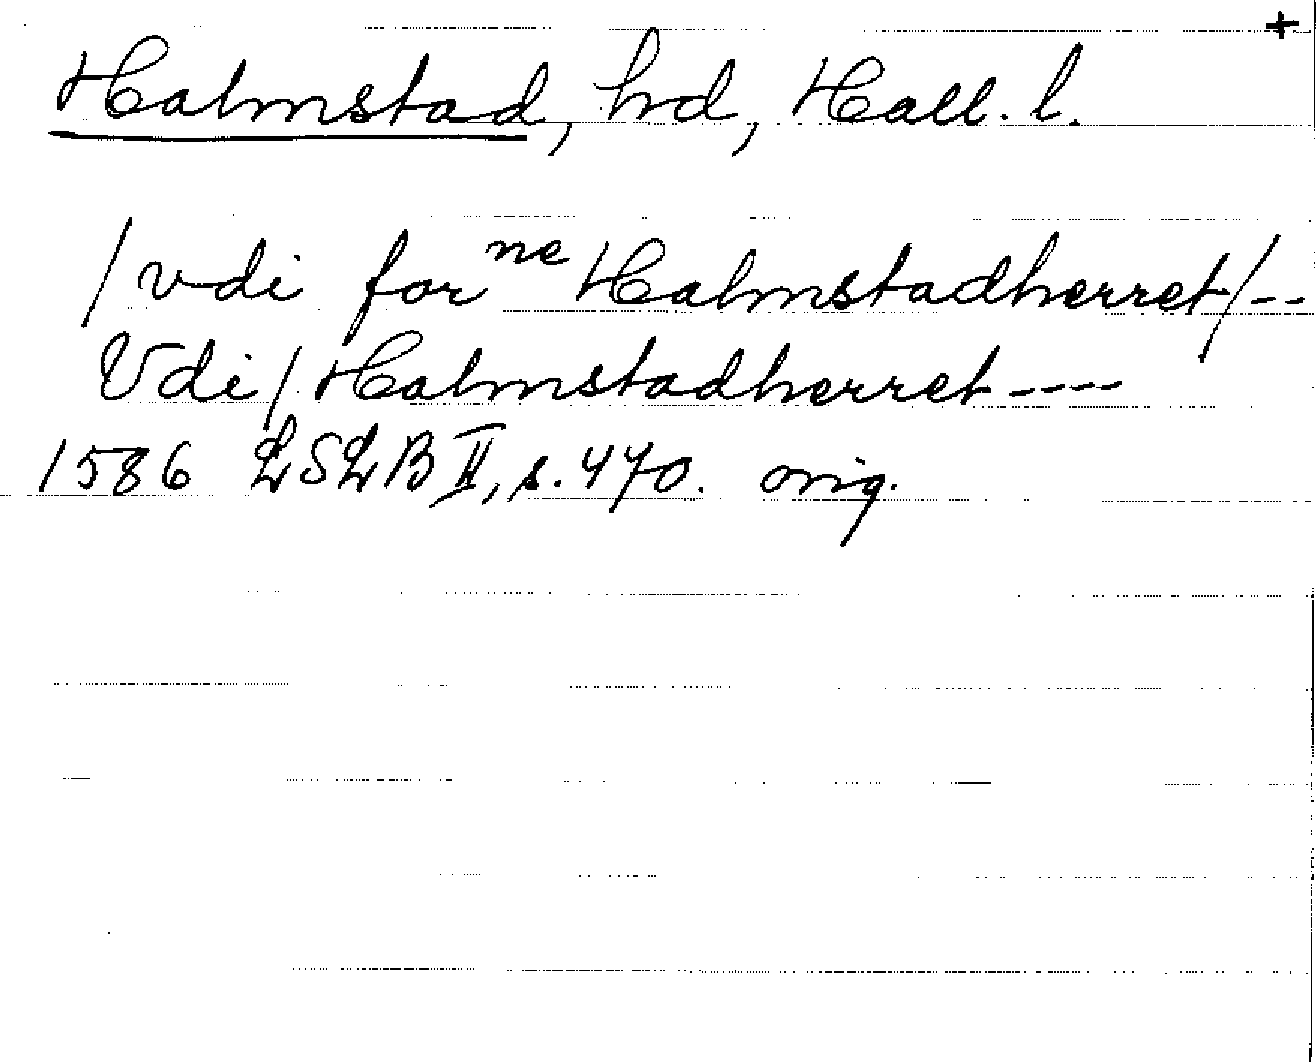 +
Halmstad, hd, Hall. l.
/vdi for ne Halmstadherret/--
Vdi/Halmstadherret----
1586 LSLB II, s. 470. orig.